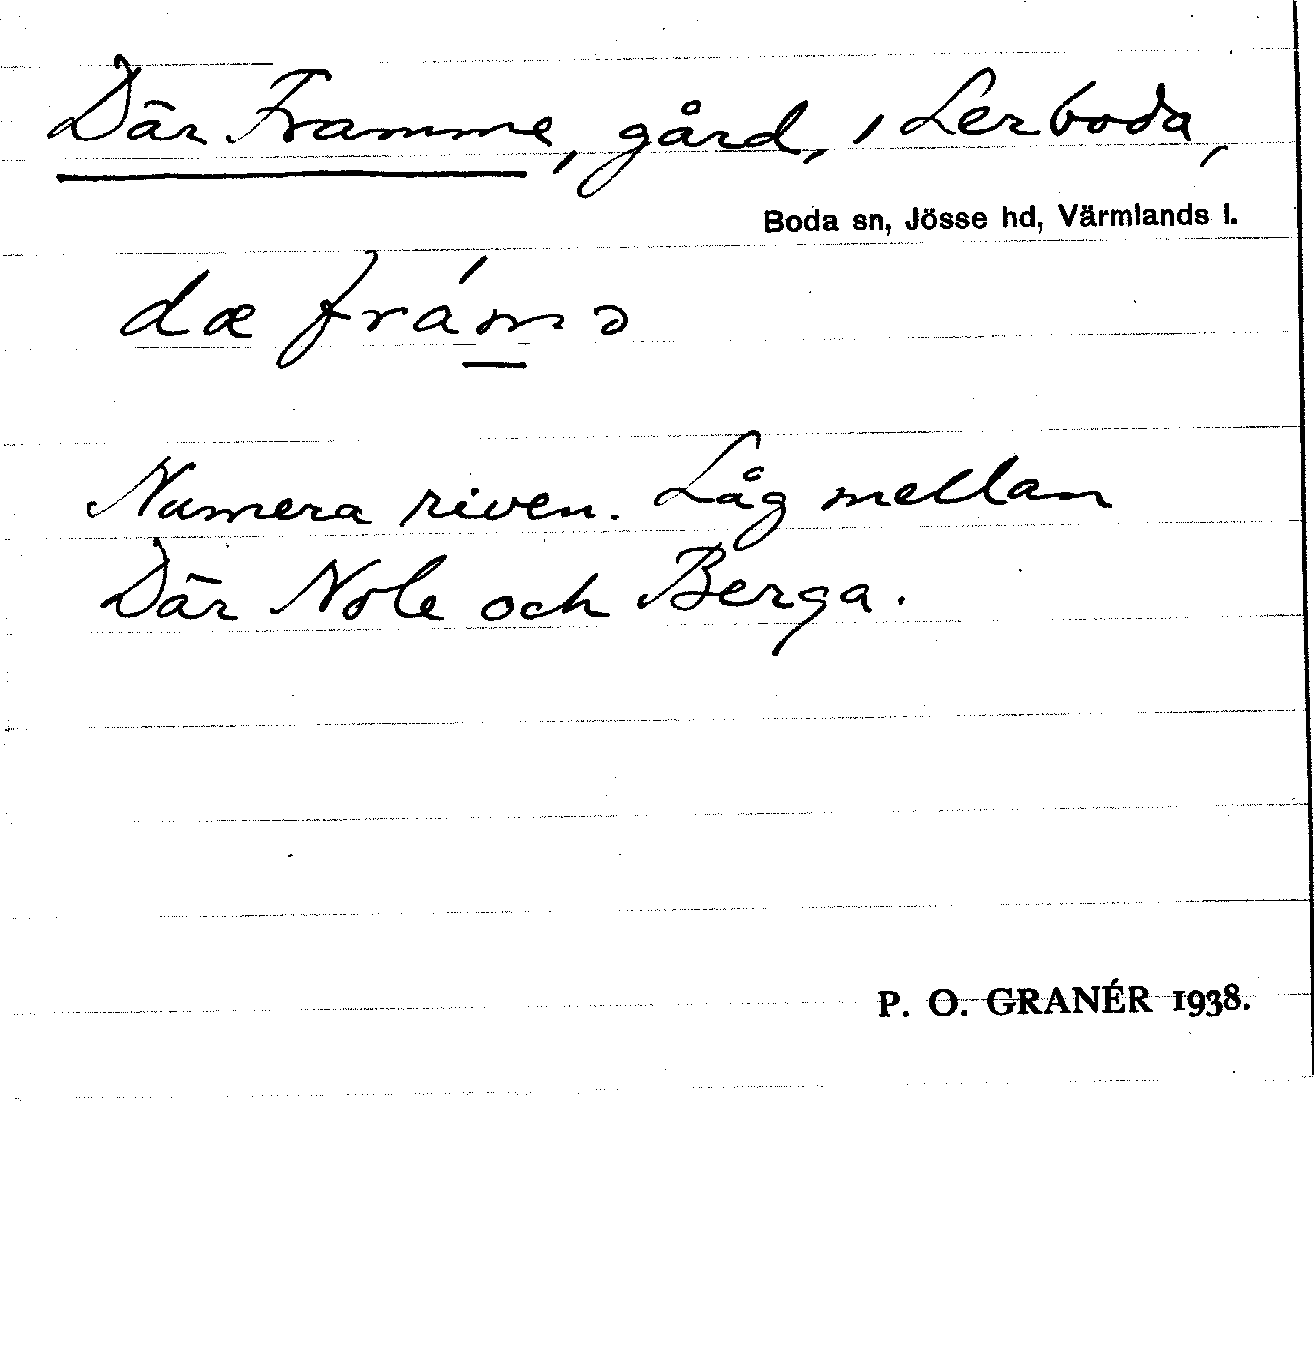 Där Framme, gård, i Lerboda,
Boda sn, Jösse hd, Värmlands l.
dæ frám̲ə
Numera riven. Låg mellan
Där Nole och Berga.
P. O. GRANÉR 1938.